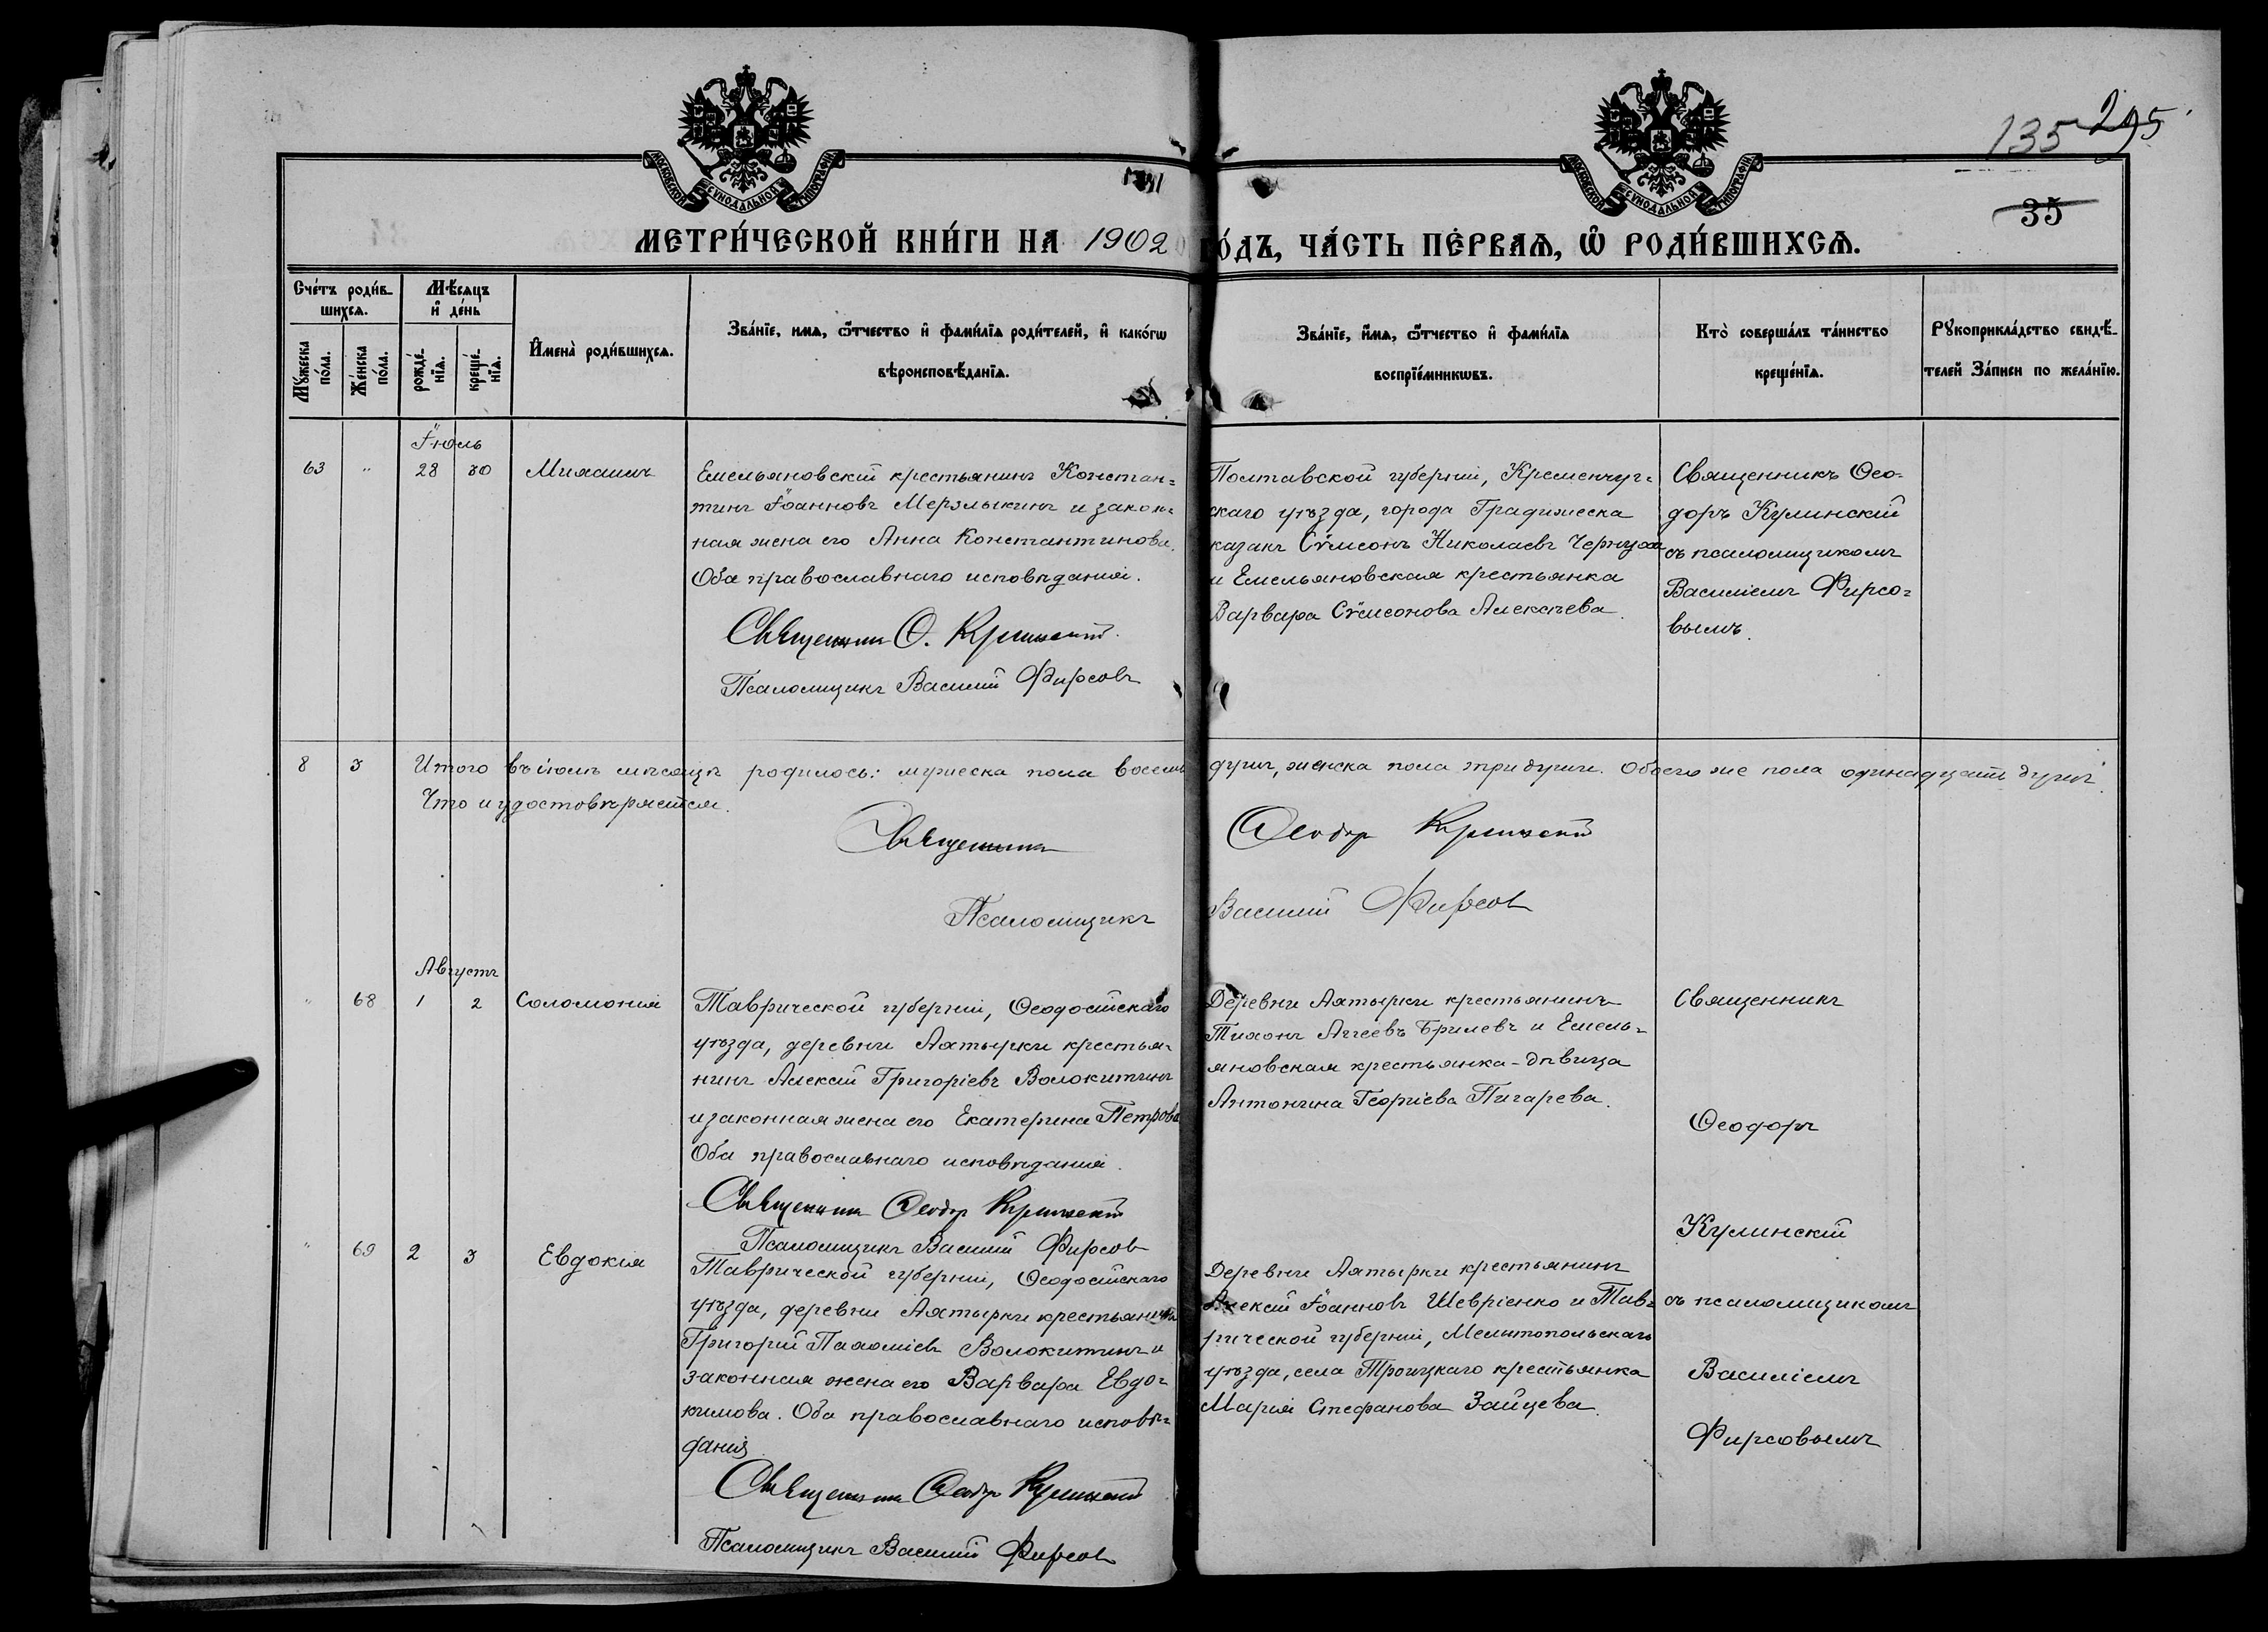 135 295
35
МОСКОВСКОЙ СУНОДАЛЬНОЙ ТИПОГРАФІИ
МОСКОВСКОЙ СУНОДАЛЬНОЙ ТИПОГРАФІИ
МЕТРИ́ЧЕСКОЙ КНИ́ГИ НА 1902 ГО́ДЪ, ЧА́СТЬ ПЕ́РВАѦ, Ѡ҆ РОДИ́ВШИХСѦ.
Сче́тъ роди́в-
шихсѧ.
Мꙋ́жеска
по́ла.
Же́нска
по́ла.
Мѣ́сѧцъ
и҆ де́нь
рожде́-
нїѧ.
креще́-
нїѧ.
И҆мена̀ роди́вшихсѧ.
Зва́нїе, имѧ, ѻ҆́тчество и҆ фами́лїѧ роди́телей, и҆ како́гѡ
вѣроисповѣ́данїѧ.
Зва́нїе, и҆́мѧ, ѻ҆́тчество и҆ фами́лїѧ
воспрїе́мникѡвъ.
Кто̀ соверша́лъ та́инство
креще́нїѧ.
Рꙋкоприкла́дство свидѣ́-
телей За́писи по жела́нїю.
Іюль
63 " 28 30 Михаилъ
Емельяновскій крестьянинъ Констан=
тинъ Іоанновъ Мерзлыкинъ и закон=
ная жена его Анна Константинова.
Оба православнаго исповѣданія.
Священникъ Ѳ. Кулинскій.
Псаломщикъ Василій Фирсовъ
Полтавской губерніи, Кременчуг=
скаго уѣзда, города Градижска
казакъ Сѵмеонъ Николаевъ
и Емельяновская крестьянка
Варвара Сѵмеонова Алексѣева.
Священникъ Ѳео-
доръ Кулинскій
съ псаломщикомъ
Василіемъ Фирсо=
вымъ.
8 3 Итого въ іюлѣ мѣсяцѣ родилось: мужеска пола восемь душъ, женска пола три души. Обоего же пола одинадцать душъ.
Что и удостовѣряется.
Священникъ Ѳеодоръ Кулинскій
Псаломщикъ Василій Фирсовъ
Августъ
" 68 1 2 Соломонія
Таврической губерніи, Ѳеодосійскаго
уѣзда, деревни Ахтырки крестья=
нинъ Алексій Григоріевъ Волокитинъ
и законная жена его Екатерина Петрова
Оба православнаго исповѣданія.
Священникъ Ѳеодоръ Кулинскій
Псаломщикъ Василій Фирсовъ
Деревни Ахтырки крестьянинъ
Тихонъ Аггеевъ Брилевъ и Емель=
яновская крестьянка-дѣвица
Антонина Георгіева Пигарева.
Священникъ
Ѳеодоръ
Кулинскій
съ псаломщикомъ
Василіемъ
Фирсовымъ
" 69 2 3 Евдокія
Таврической губерніи, Ѳеодосійскаго
уѣзда, деревни Ахтырки крестьянинъ
Григорій Пахоміевъ Волокитинъ и
законная жена его Варвара Евдо=
кимова. Оба православнаго исповѣ=
данія
Священникъ Ѳеодоръ Кулинскій
Псаломщикъ Василій Фирсовъ
Деревни Ахтырки крестьянинъ
Алексій Іоанновъ Шевріенко и Тав=
рической губерніи, Мелитопольскаго
уѣзда, села Троицкаго крестьянка
Марія Стефанова Зайцева.